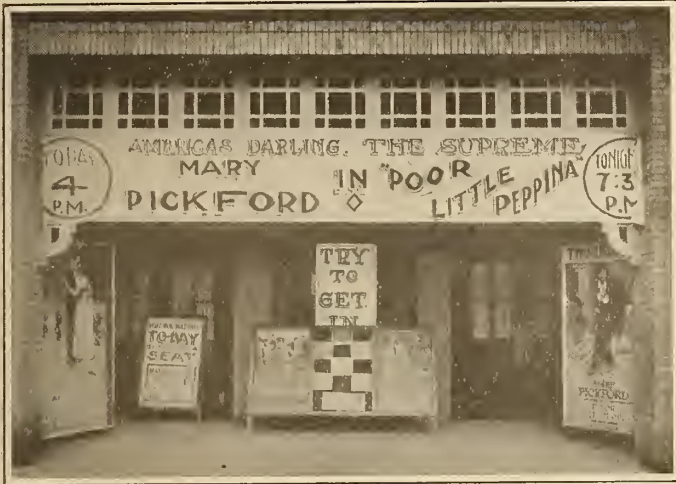 AMERICAS DARLING. THE SUPREME
MARY
PICKFORD
IN "POOR
LITTLE
PEPPINA
TODAY
4
P.M.
TONIGH
7:3
P.M
TRY
TO
GET
IN
TO-DAY
SEAT
PICKFORD